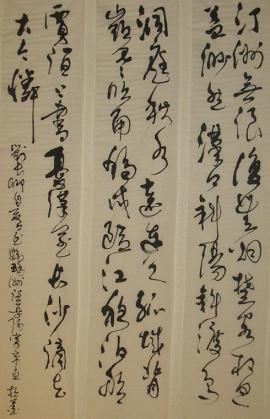 汀洲無浪復無烟楚客相思
益渺然漢口斜陽斜渡鳥
洞庭秋水遠連天孤城背
嶺寒吹角獨戍臨江夜泊船
賈誼上書憂漢室長沙謫去
古今憐
劉長卿自夏口至鸚鵡洲望岳陽寄